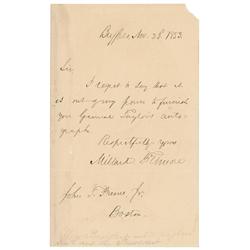 Buffalo, Nov. 28. 1853.
Sir
I regret to say that it
is out of my power to furnish
you General Taylor's auto-
graph.
Respectfully yours
Millard Fillmore
John S. Jr.
Boston.